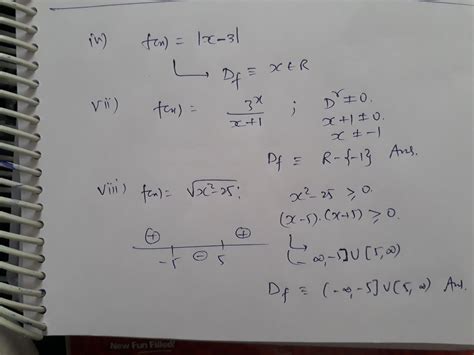 iv) f(x) = |x-3|
↳ Df ≡ x ∈ R
vii) f(x) = 3^x / x+1 ; D^r ≠ 0.
x+1 ≠ 0.
x ≠ -1
Df ≡ R-{-1} Ans.
viii) f(x) = √x²-25 ; x²-25 ≥ 0.
(x-5).(x+5) ≥ 0.
⊕ ⊖ ⊕
-5 5
↳ -∞,-5]∪[5,∞)
Df ≡ (-∞,-5]∪[5,∞) Ans.
New Fun Failed!